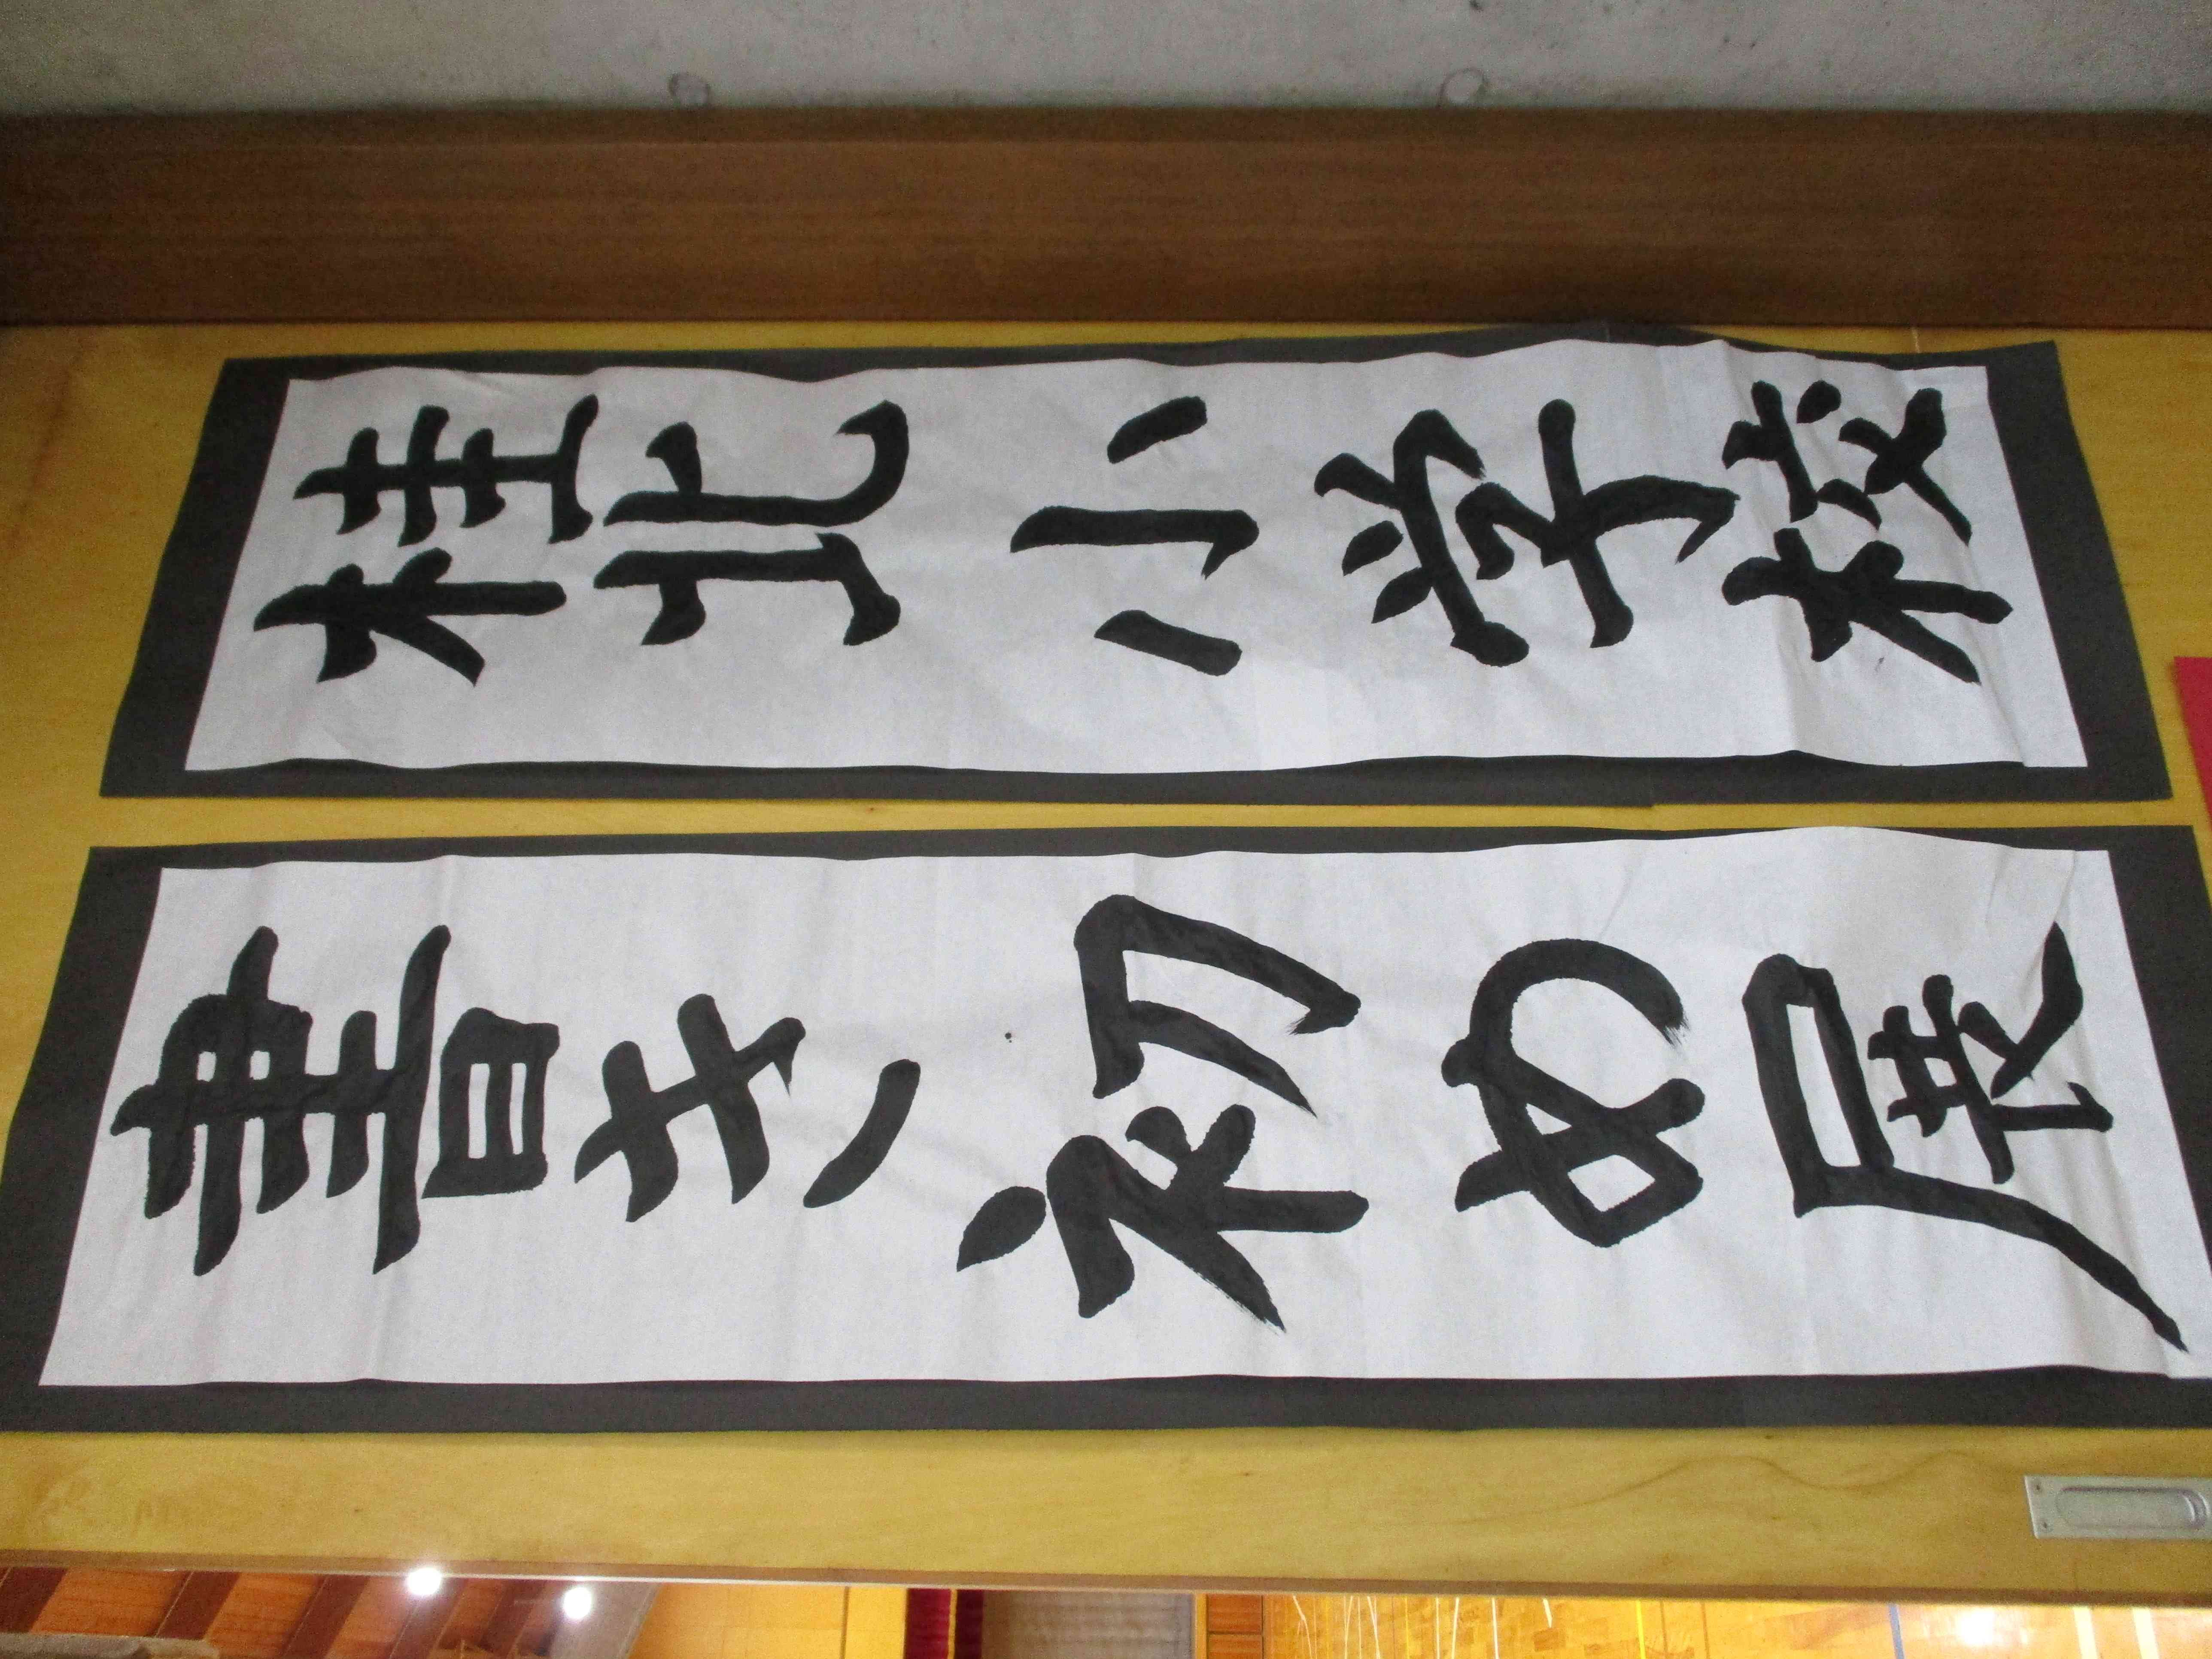 桂北小学校
書き初め展